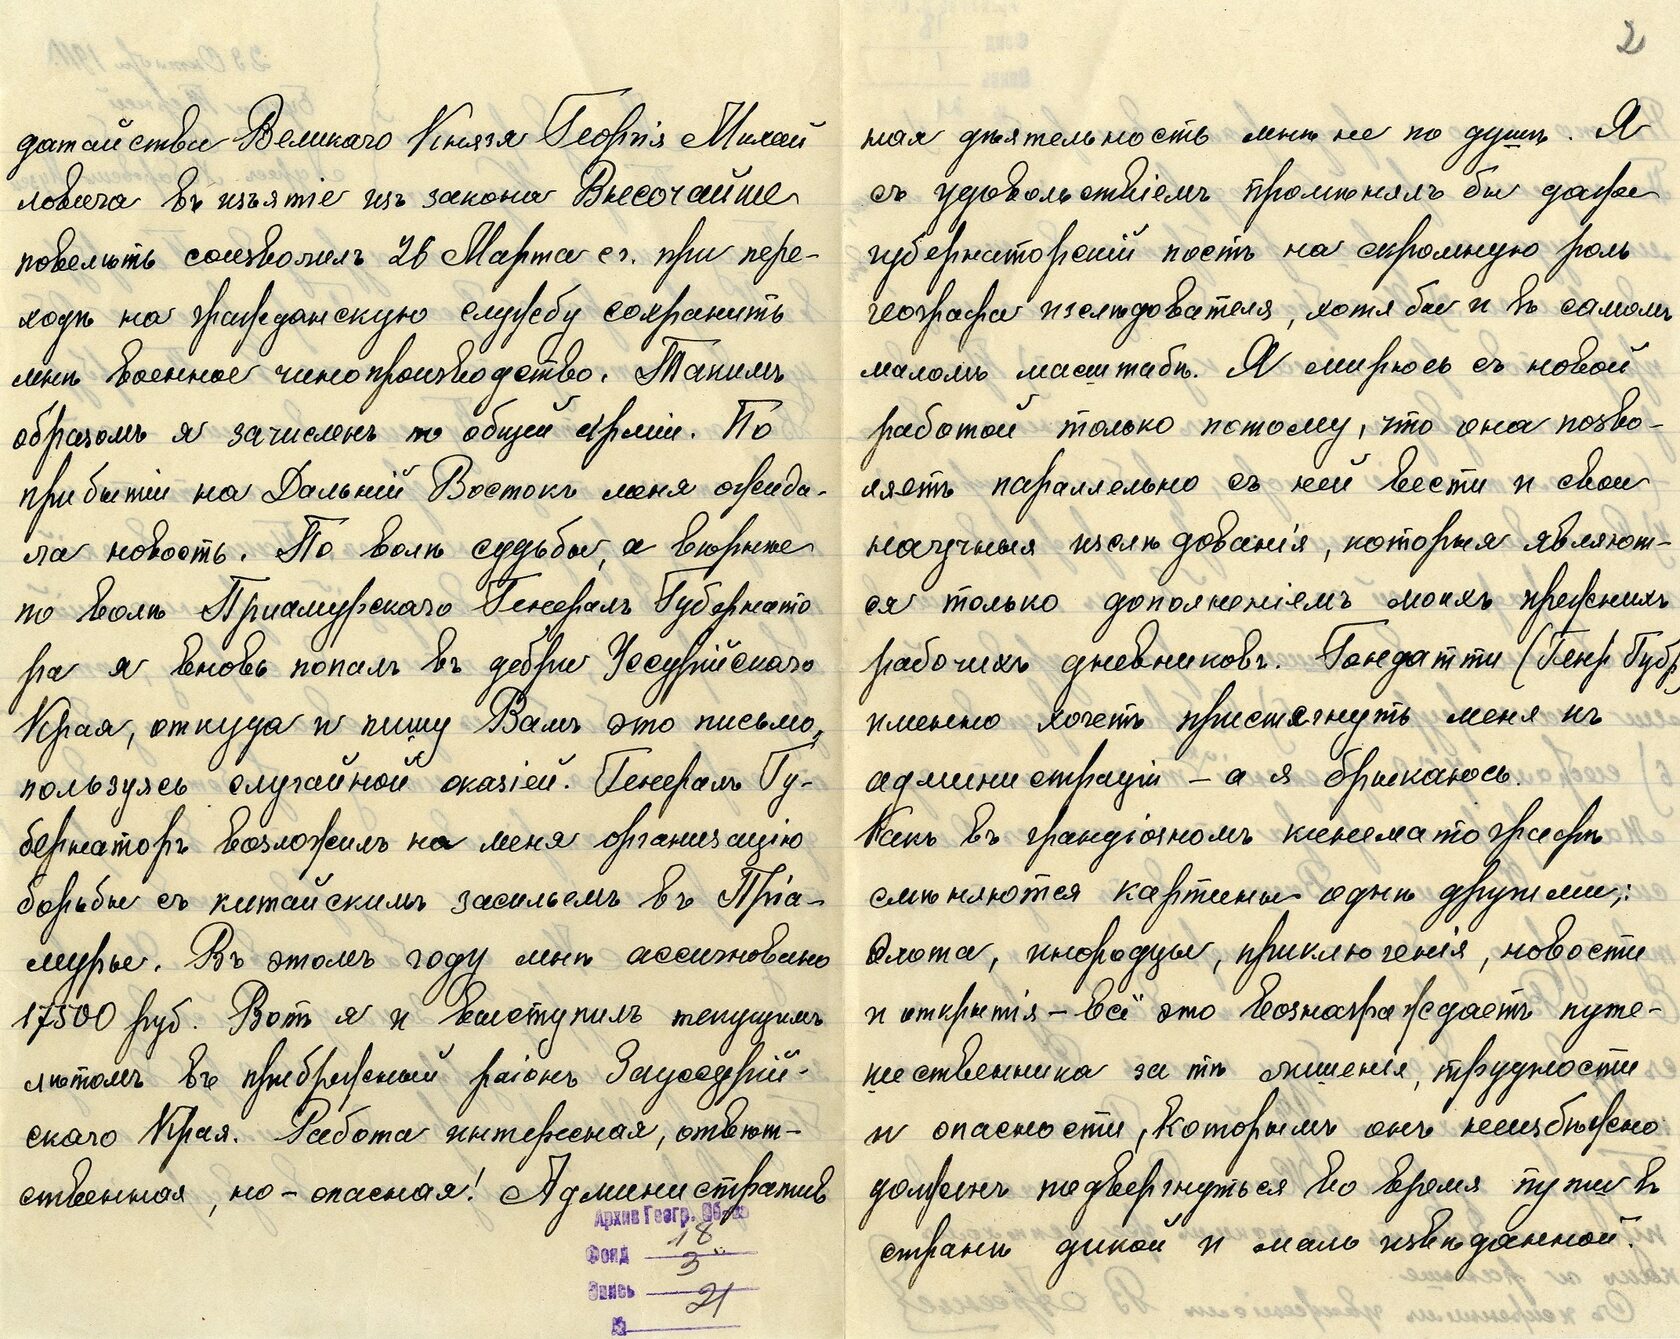 датайству Великаго Князя Георгія Михай
ловича въ изъятіе изъ закона Высочайше
повелѣть соизволилъ 26 Марта сг. при пере-
ходѣ на гражданскую службу сохранить
мнѣ военное чинопроизводство. Такимъ
образомъ я зачисленъ по общей Арміи. По
прибытіи на Дальній Востокъ меня ожида-
ла новость. По волѣ судьбы, а вѣрнѣе
по волѣ Приамурскаго Генералъ Губернато
ра я вновь попалъ въ дебри Уссурійскаго
Края, откуда и пишу Вамъ это письмо,
пользуясь случайной оказіей. Генералъ Гу-
бернаторъ возложилъ на меня организацію
борьбы съ китайскимъ засильемъ въ Пріа-
мурье. Въ этомъ году мнѣ ассигновано
17500 руб. Вотъ я и выступилъ текущимъ
лѣтомъ въ прибрежный раіонъ Зауссурій-
скаго Края. Работа интересная, отвѣт-
ственная, но - опасная! Административ
Архив Геогр. Об-ва
Фонд 18
Опись 3
№ 21
2
ная дѣятельность мнѣ не по душѣ. Я
съ удовольствіемъ промѣнялъ бы даже
губернаторскій постъ на скромную роль
географа изслѣдователя, хотя бы и въ самомъ
маломъ масштабѣ. Я мирюсь съ новой
работой только потому, что она позво-
ляетъ параллельно съ ней вести и свои
научныя изслѣдованія, которыя являют-
ся только дополненіемъ моихъ прежнихъ
рабочихъ дневниковъ. Гондатти (Генр Губр)
именно хочетъ пристягнуть меня къ
администраціи - а я брыкаюсь.
Какъ въ грандіозномъ кинематографѣ
смѣняются картины однѣ другими;:
Охота, инородцы, приключенія, новости
и открытія - всё это вознаграждаетъ путе-
шественника за тѣ лишенія, трудности
и опасности, которымъ онъ неизбѣжно
долженъ подвергнуться во время пути въ
странѣ дикой и мало извѣданной.